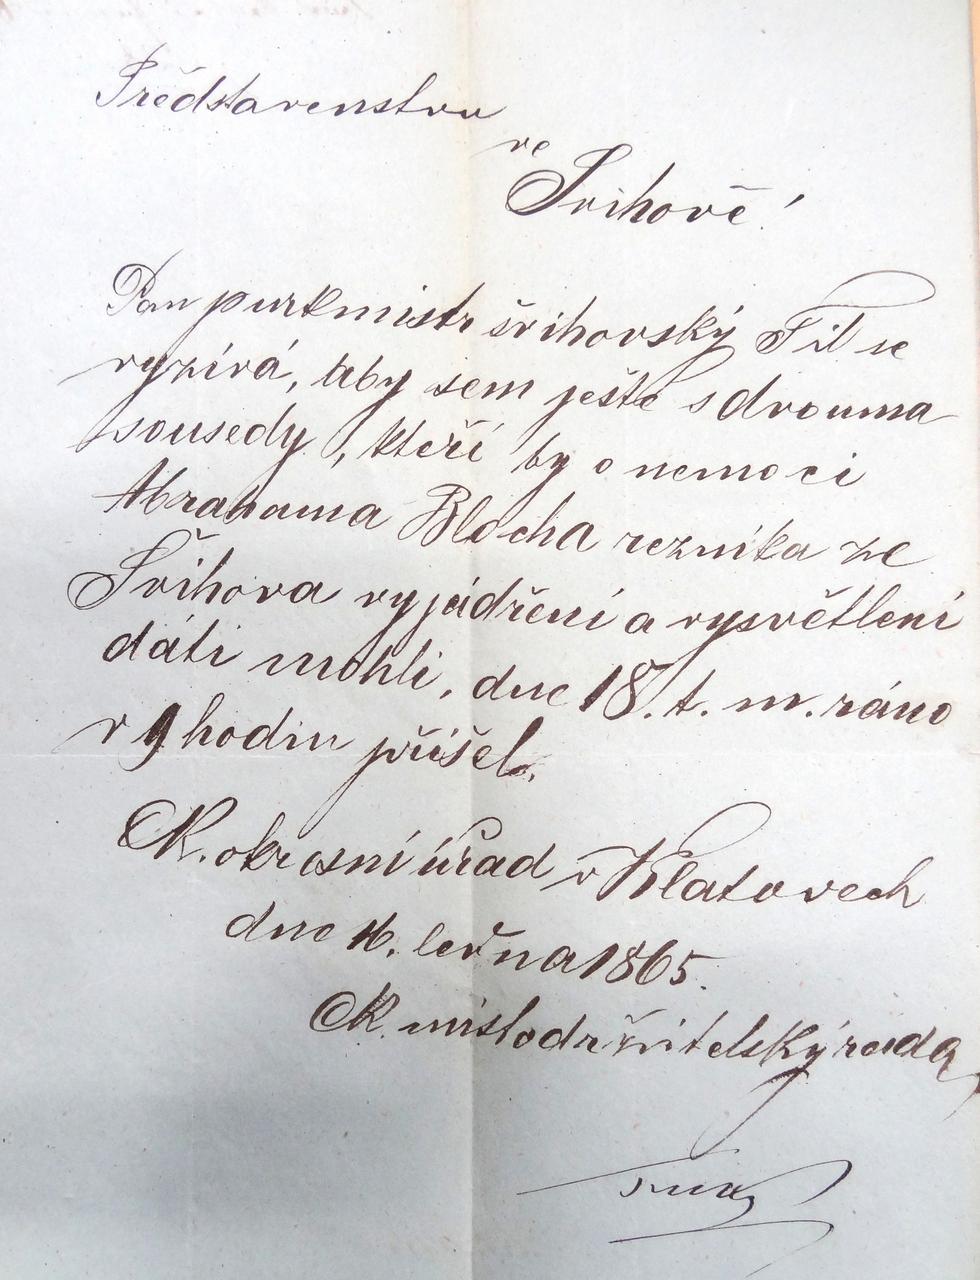 Představenstvu
ve
Švihově!
Pan purkmistr švihovský Fil se
vyzívá, aby sem ještě s dvouma
sousedy, kteří by o nemoci
Abrahama Blocha řezníka ze
Švihova vyjádření a vysvětlení
dáti mohli, dne 18. t. m. ráno
v 9 hodin přišel.
K. okresní úřad v Klatovech
dne 16. ledna 1865.
K. místodržitelský rada